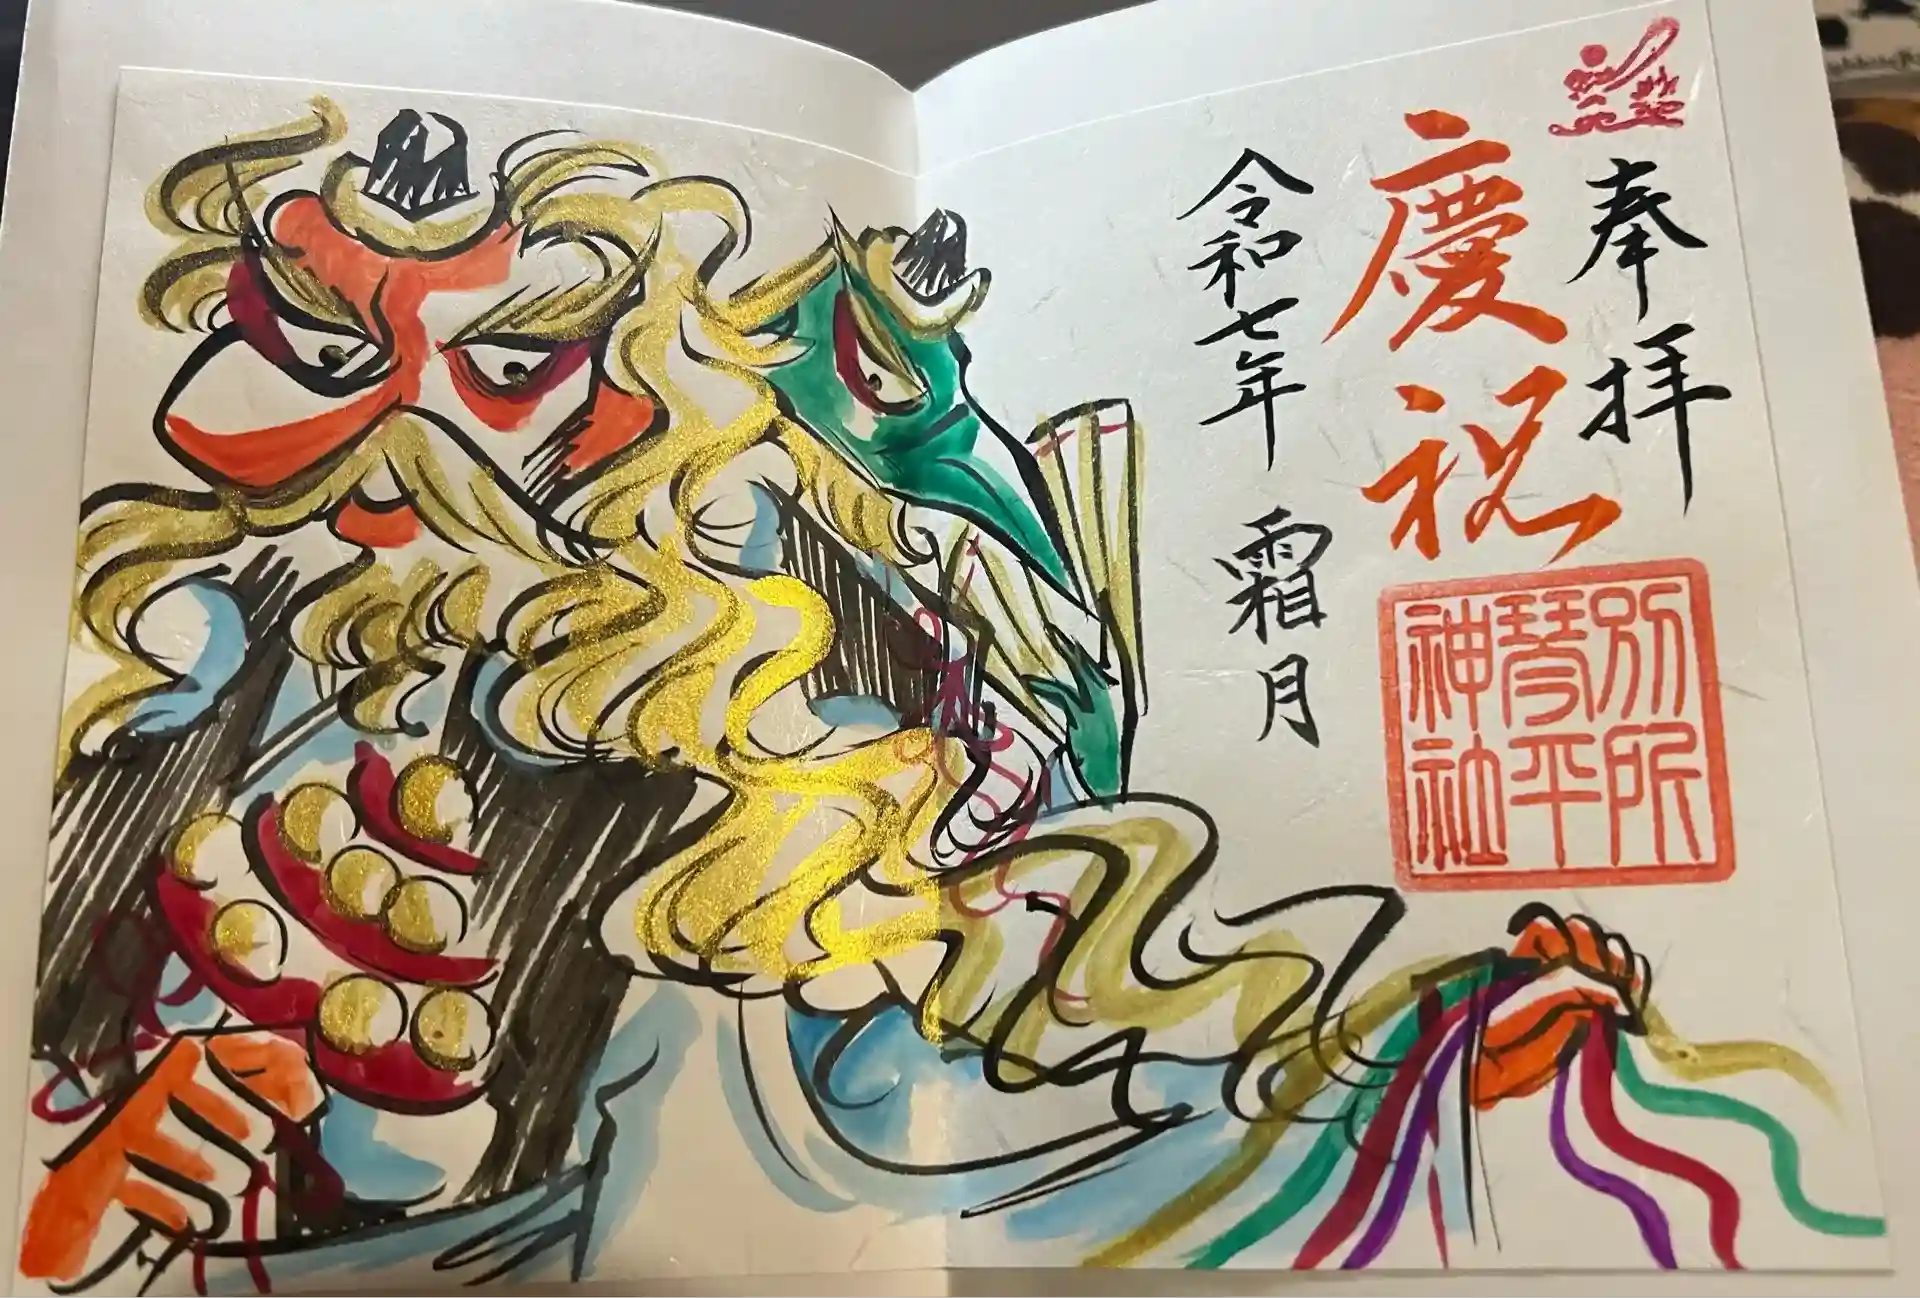 奉拝
慶祝
令和七年 霜月
別所
琴平
神社